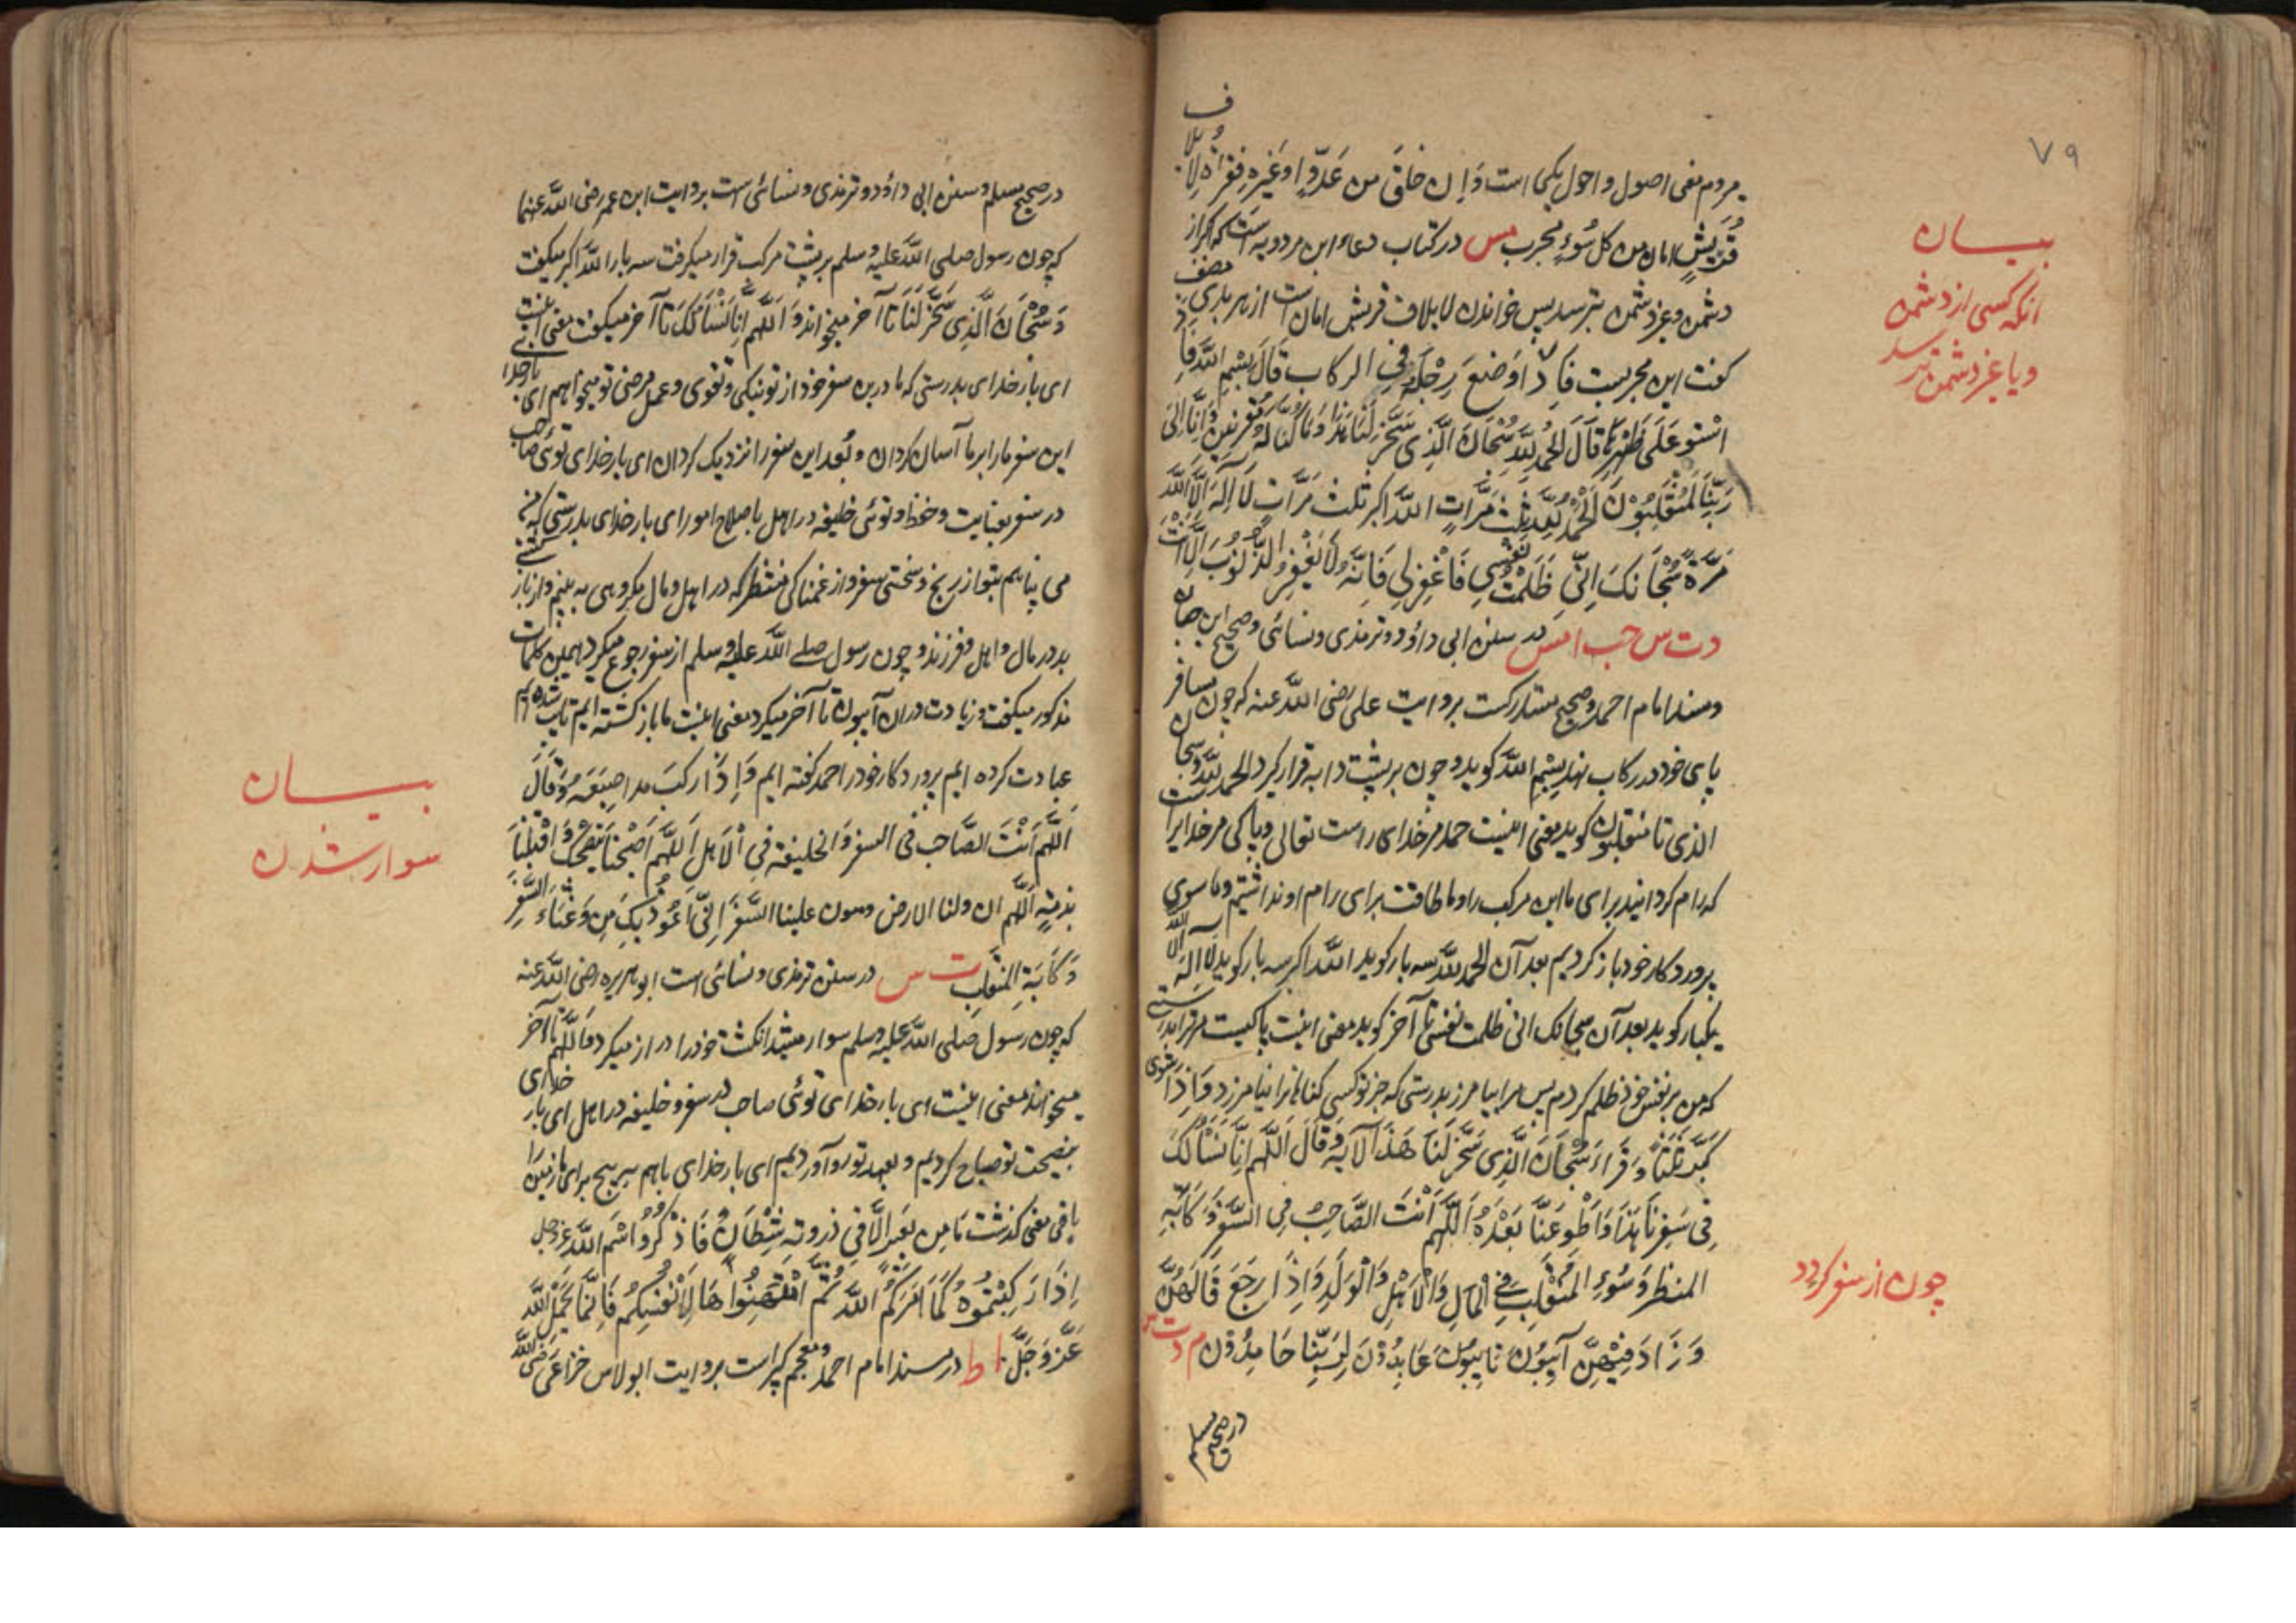 ٧٩
میروم معنی اصول و احول یکی است وَاِن خَافَ من عَدُوٍّ اَو غَيْرِه فقرأة لِاِيلاف
قُرَيْشٍ امان من كل سُوءٍ مجرب مس در کتاب دعاء ابن مردویه است که اگر از
دشمن و غیر دشمن بترسد پس خواندن لایلاف قریش امان است از هر بدی مصنف
گفت این مجربیست فَاِذَا وَضَعَ رِجْلَهُ فِي الركاب قَالَ بِسْمِ اللّٰه فَاِذَا
اسْتَوٰى عَلَى ظَهْرِهَا قَالَ الْحَمْدُ لِلّٰهِ سُبْحَانَ الَّذِي سَخَّرَ لَنَا هٰذَا وَمَا كُنَّا لَهُ مُقْرِنِينَ وَاِنَّا اِلَى
رَبِّنَا لَمُنْقَلِبُوْنَ اَلْحَمْدُ لِلّٰهِ ثلث مَرَّاتٍ اللّٰه اكبر ثلث مَرَّاتٍ لَا اِلٰهَ اِلَّا اللّٰه
مَرَّةً سُبْحَانَكَ اِنِّي ظَلَمْتُ نَفْسِي فَاغْفِرْ لِي فَاِنَّهُ لَا يَغْفِرُ الذُّنُوبَ اِلَّا اَنْتَ
دت س حب ا مس در سنن ابی داؤد و ترمذی و نسائی و صحیح ابن حبان
و مسند امام احمد و صحیح مستدرکست بروایت علی رضی اللّٰه عنه که چون مسافر
پای خود در رکاب نهد بِسْمِ اللّٰه گوید و چون بر پشت دابه قرار گیرد الحمد للّٰه و سبحان
الذی تا منقلبون گوید معنی اینست حمد مر خدای راست تعالی و پاکی مر خدایراست
که رام گردانید برای ما این مرکب را و ما طاقت برای رام او نداشتیم و ما سوی
پروردگار خود باز گردیم بعد آن الحمد للّٰه سه بار گوید اللّٰه اکبر سه بار گوید لا اله الا اللّٰه
یکبار گوید بعد آن سبحانک انی ظلمت نفسی تا آخر گوید معنی اینست پاکیست مر ترا بدرستی
که من بر نفس خود ظلم کردم پس مرا بیامرز بدرستی که جز تو کسی گناهانرا نیامرزد وَاِذَا اسْتَوٰى
كَبَّرَ ثَلٰثًا وَقَرَاَ سُبْحَانَ الَّذِي سَخَّرَ لَنَا هٰذَا الْاٰيَةَ وَقَالَ اَللّٰهُمَّ اِنَّا نَسْأَلُكَ
فِي سَفَرِنَا هٰذَا وَاطْوِ عَنَّا بُعْدَهُ اَللّٰهُمَّ اَنْتَ الصَّاحِبُ فِي السَّفَرِ وَكَاٰبَةِ
المنظر وَسُوْءِ الْمُنْقَلَبِ فِي الْمَالِ وَالْاَهْلِ وَالْوَلَدِ وَاِذَا رَجَعَ قَالَهُنَّ
وَزَادَ فِيْهِنَّ اٰئِبُوْنَ تَائِبُوْنَ عَابِدُوْنَ لِرَبِّنَا حَامِدُوْنَ م دت س
در صحیح مسلم
بیان
انکه کسی از دشمن
و یا غیر دشمن بترسد
چون از سفر گردد
در صحیح مسلم و سنن ابی داؤد و ترمذی و نسائی است بروایت ابن عمر رضی اللّٰه عنهما
که چون رسول صلی اللّٰه علیه وسلم بر پشت مرکب قرار میگرفت سه بار اللّٰه اکبر میگفت
وَسُبْحَانَ الَّذِي سَخَّرَ لَنَا تا آخر میخواند وَاَللّٰهُمَّ اِنَّا نَسْاَلُكَ تا آخر میگفت معنی اینست
ای بار خدای بدرستی که ما درین سفر خود از تو نیکی و تقوی و عمل مرضی تو میخواهیم ای بار خدا
این سفر ما را بر ما آسان گردان و بُعد این سفر را نزدیک گردان ای بار خدای توئی صاحب
در سفر بعنایت و حفظ و توئی خلیفه در اهل باصلاح امور ای بار خدای بدرستی که من
می پناهم بتو از رنج و سختی سفر و از غمناکی منظر که در اهل و مال مکروهی به بینم و از باز گشتن
بد در مال و اهل و فرزند و چون رسول صلے اللّٰه علیه وسلم از سفر رجوع میکرد همین کلمات
مذکور میگفت و زیادت در ان آئبون تا آخر میکرد معنی اینست ما باز گشته ایم تایب شده ایم
عبادت کرده ایم پروردگار خود را حمد گفته ایم وَاِذَا رَكِبَ مد اصبَعَهُ وَقَالَ
اَللّٰهُمَّ اَنْتَ الصَّاحب فی السفر وَالخليفة فِي الْاَهل اَللّٰهُمَّ اَصْحِبْنَا بِنُصْحِكَ وَاقْلِبْنَا
بِذِمَّةٍ اَللّٰهُمَّ ازو لنا الارض وهون علینا السَّفَرَ اِنِّي اَعُوْذُ بِكَ مِن وَعْثَاءِ السَّفَرِ
وَكَاٰبَةِ المنقلب ت س در سنن ترمذی و نسائی است ابو هریره رضی اللّٰه عنه
که چون رسول صلی اللّٰه علیه وسلم سوار میشد انکشت خود را دراز میکرد و اَللّٰهُمَّ تا آخر
میخواند معنی اینست ای بار خدای توئی صاحب در سفر و خلیفه در اهل ای بار خدای
بنصیحت تو صباح کردیم و بعهد تو رو آوردیم ای بار خدای باهم بپیچ برای ما زمین را
باقی معنی گذشت مَا مِن بَعِير اِلَّا فِي ذروته شَيْطَانٌ فَاذْكُرُوا اسْمَ اللّٰه عز وجل
اِذَا رَكِبْتُمُوهُ كَمَا اَمَرَكُمُ اللّٰه ثُمَّ امْتَهِنُوا هَا لِاَنْفُسِكُم فَاِنَّمَا يَحْمِلُ اللّٰه
عَزَّ وَجَلَّ ا ط در مسند امام احمد و معجم کبیر است بروایت ابو لاس خزاعی رضی اللّٰه
بیان
سوار شدن